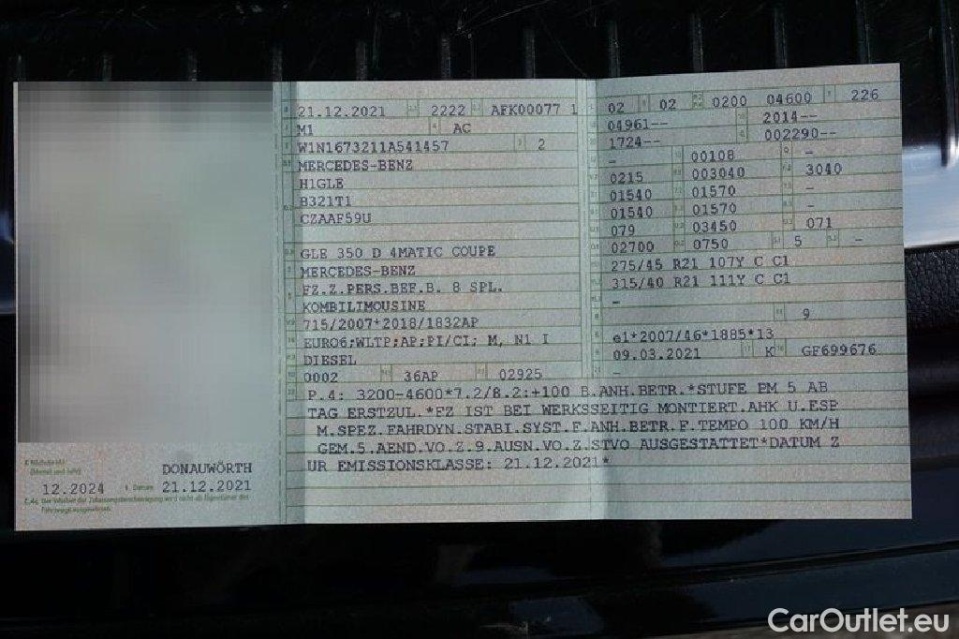 21.12.2021 2222 AFK00077 1
M1 AC
W1N1673211A541457 2
MERCEDES-BENZ
H1GLE
B321T1
CZAAF59U
GLE 350 D 4MATIC COUPE
MERCEDES-BENZ
FZ.Z.PERS.BEF.B. 8 SPL.
KOMBILIMOUSINE
715/2007*2018/1832AP
EURO6;WLTP;AP;PI/CI; M, N1 I
DIESEL
0002 36AP 02925
02 02 0200 04600 226
04961-- 2014--
1724-- 002290--
- 00108 -
0215 003040 3040
01540 01570 -
01540 01570 -
079 03450 071
02700 0750 5 -
275/45 R21 107Y C C1
315/40 R21 111Y C C1
-
9
e1*2007/46*1885*13
09.03.2021 K GF699676
-
P.4: 3200-4600*7.2/8.2:+100 B.ANH.BETR.*STUFE PM 5 AB
TAG ERSTZUL.*FZ IST BEI WERKSSEITIG MONTIERT.AHK U.ESP
M.SPEZ.FAHRDYN.STABI.SYST.F.ANH.BETR.F.TEMPO 100 KM/H
GEM.5.AEND.VO.Z.9.AUSN.VO.Z.STVO AUSGESTATTET*DATUM Z
UR EMISSIONSKLASSE: 21.12.2021*
DONAUWÖRTH
12.2024 Datum 21.12.2021
CarOutlet.eu